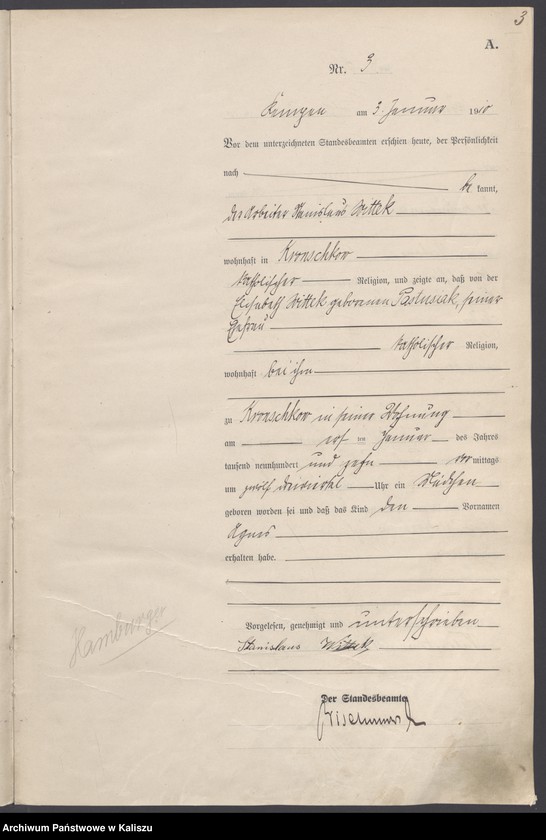 3
A.
Nr. 3
Kempen am 3. Januar 1910
Vor dem unterzeichneten Standesbeamten erschien heute, der Persönlichkeit
nach be kannt,
der Arbeiter Stanislaus Wittek
wohnhaft in Kronschkow
katholischer Religion, und zeigte an, daß von der
Elisabeth Wittek geborenen Pastusiak, seiner
Ehefrau
katholischer Religion,
wohnhaft bei ihm
zu Kronschkow in seiner Wohnung
am im Januar des Jahres
tausend neunhundert und zehn vor mittags
um zwölf dreiviertel Uhr ein Mädchen
geboren worden sei und daß das Kind den Vornamen
Agnes
erhalten habe.
Vorgelesen, genehmigt und unterschrieben
Stanislaus Wittek
Der Standesbeamte
Hamburger
Archiwum Państwowe w Kaliszu